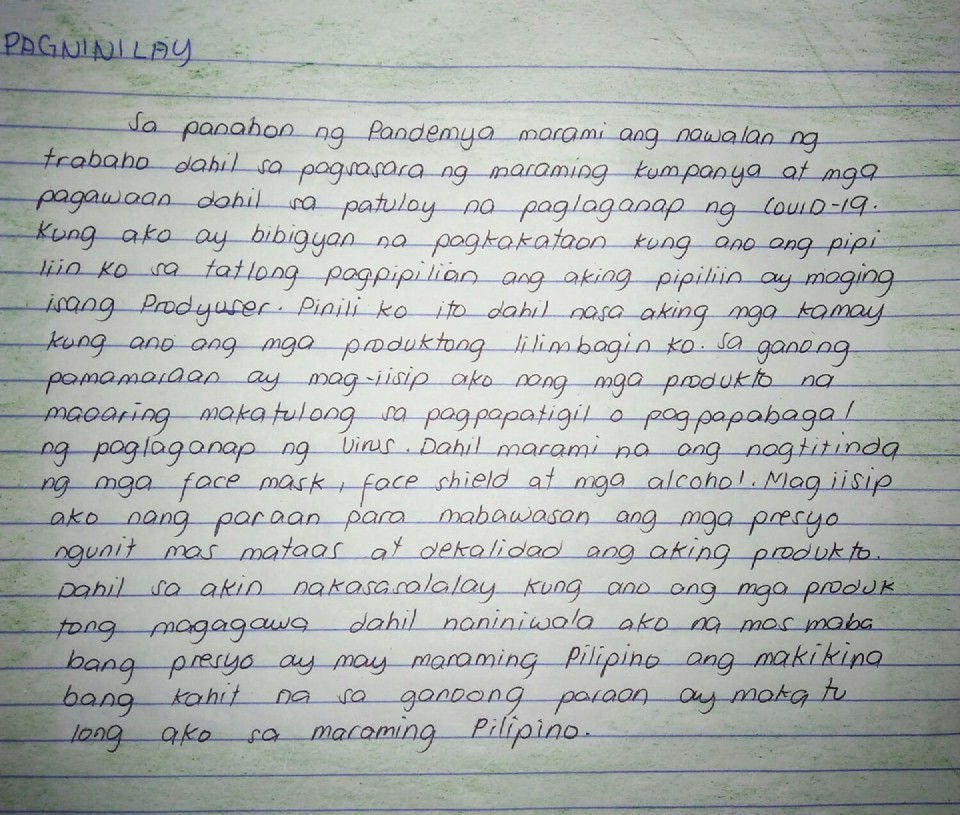 PAGNINILAY
Sa panahon ng Pandemya marami ang nawalan ng
trabaho dahil sa pagsasara ng maraming kumpanya at mga
pagawaan dahil sa patuloy na paglaganap ng COVID-19.
Kung ako ay bibigyan na pagkakataon kung ano ang pipi
liin ko sa tatlong pagpipilian ang aking pipiliin ay maging
isang Prodyuser. Pinili ko ito dahil nasa aking mga kamay
kung ano ang mga produktong lilimbagin ko. Sa ganong
pamamaraan ay mag-iisip ako nang mga produkto na
maaaring makatulong sa pagpapatigil o pagpapabagal
ng paglaganap ng Virus. Dahil marami na ang nagtitinda
ng mga face mask, face shield at mga alcohol. Mag iisip
ako nang paraan para mabawasan ang mga presyo
ngunit mas mataas at dekalidad ang aking produkto.
Dahil sa akin nakasasalalay kung ano ang mga produk
tong magagawa dahil naniniwala ako na mas maba
bang presyo ay may maraming Pilipino ang makikina
bang kahit na sa ganoong paraan ay maka tu
long ako sa maraming Pilipino.